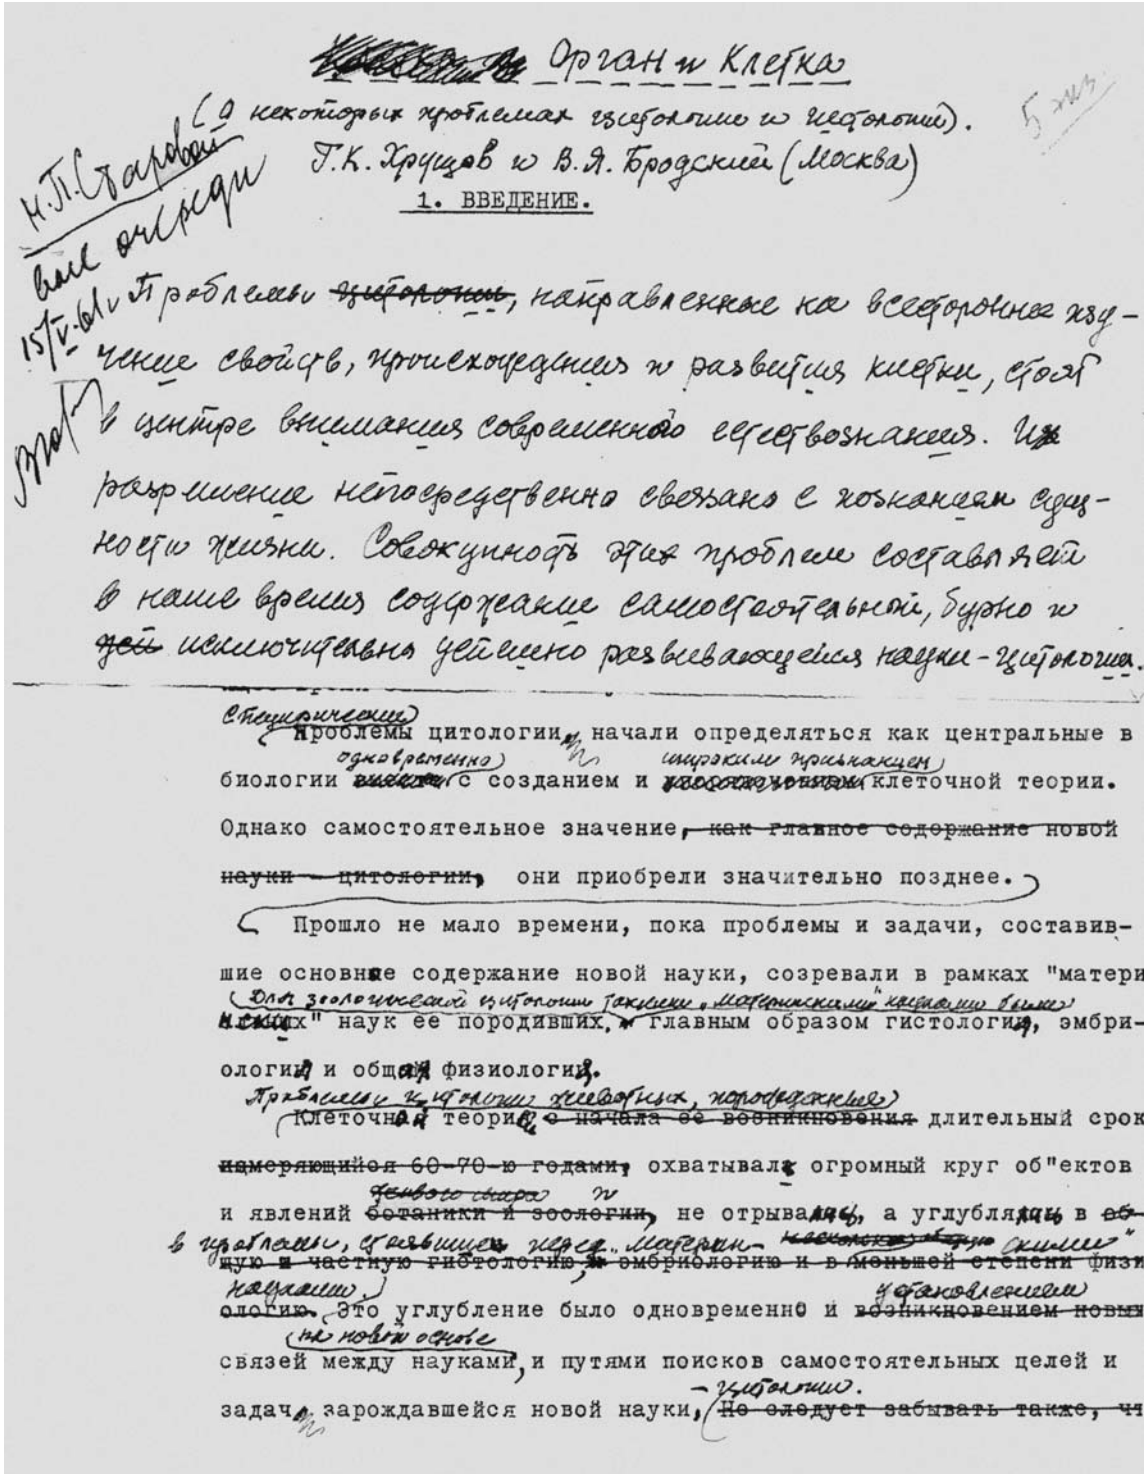 Орган и Клетка
5 экз.
(О некоторых проблемах цитологии и гистологии).
Г.К. Хрущов и В.Я. Бродский (Москва)
Н.П. Старовой
вне очереди
15/V-61г
1. ВВЕДЕНИЕ.
Проблемы цитологии, направленные на всестороннее изу-
чение свойств, происхождения и развития клетки, стоят
в центре внимания современного естествознания. Их
разрешение непосредственно связано с познанием сущ-
ности жизни. Совокупность этих проблем составляет
в наше время содержание самостоятельной, бурно и
исключительно успешно развивающейся науки - цитологии.
Специфические
проблемы цитологии, начали определяться как центральные в
одновременно широким признанием
биологии с созданием и клеточной теории.
Однако самостоятельное значение, как главное содержание новой
науки - цитологии, они приобрели значительно позднее.
Прошло не мало времени, пока проблемы и задачи, составив-
шие основное содержание новой науки, созревали в рамках "матери
(Для зоологической цитологии такими „материнскими" науками были
нских" наук ее породивших, главным образом гистология, эмбри-
ология и общая физиология.
Проблемы цитологии животных, порожденные
Клеточной теорией, с начала ее возникновения длительный срок
измеряющийся 60-70-ю годами, охватывали огромный круг об"ектов
живого мира и
и явлений ботаники и зоологии, не отрываясь, а углубляясь в об-
в проблемы, стоявшие перед „материн- скими"
щую и частную гистологию, эмбриологию и в меньшей степени физи
науками.) установлением
ологию. Это углубление было одновременно и возникновением новых
(на новой основе
связей между науками, и путями поисков самостоятельных целей и
- цитологии.
задач, зарождавшейся новой науки, (Не следует забывать также, чт